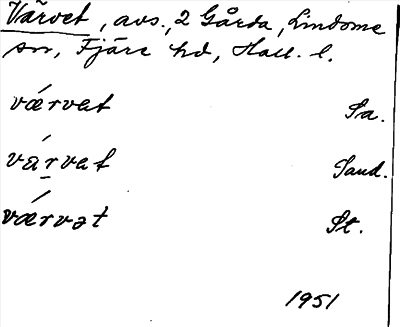 Värvet, avs., 2 Gårda, Lindome
sn, Fjäre hd, Hall. l.
værvet Sa.
várvet Sand.
værvət St.
1951